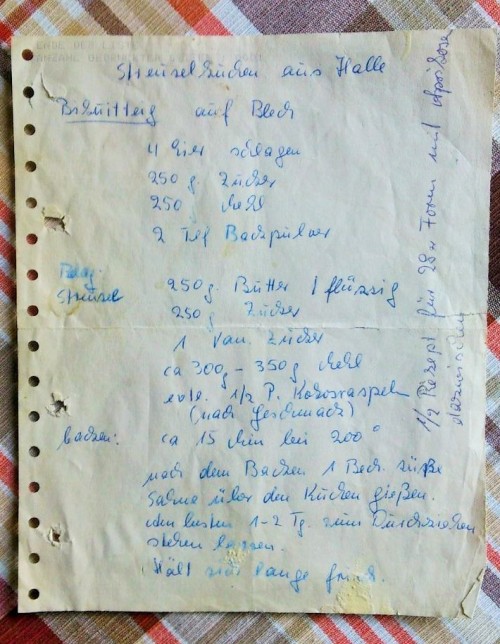 ENDE DER LISTE
Streuselkuchen aus Halle
Biskuitteig auf Blech
4 Eier schlagen
250 g Zucker
250 g Mehl
2 Tel Backpulver
Streusel 250 g. Butter / flüssig
250 g Zucker
1 Van. Zucker
ca 300g - 350 g Mehl
evtl. 1/2 P. Kokosraspeln
(nach Geschmack)
backen: ca 15 Min bei 200°
nach dem Backen 1 Bech. süße
Sahne über den Kuchen gießen.
Am besten 1-2 Tg. zum Durchziehen
stehen lassen.
Hält sich lange frisch.
1/2 Rezept für 28er Form und Aprikosen
dazwischen